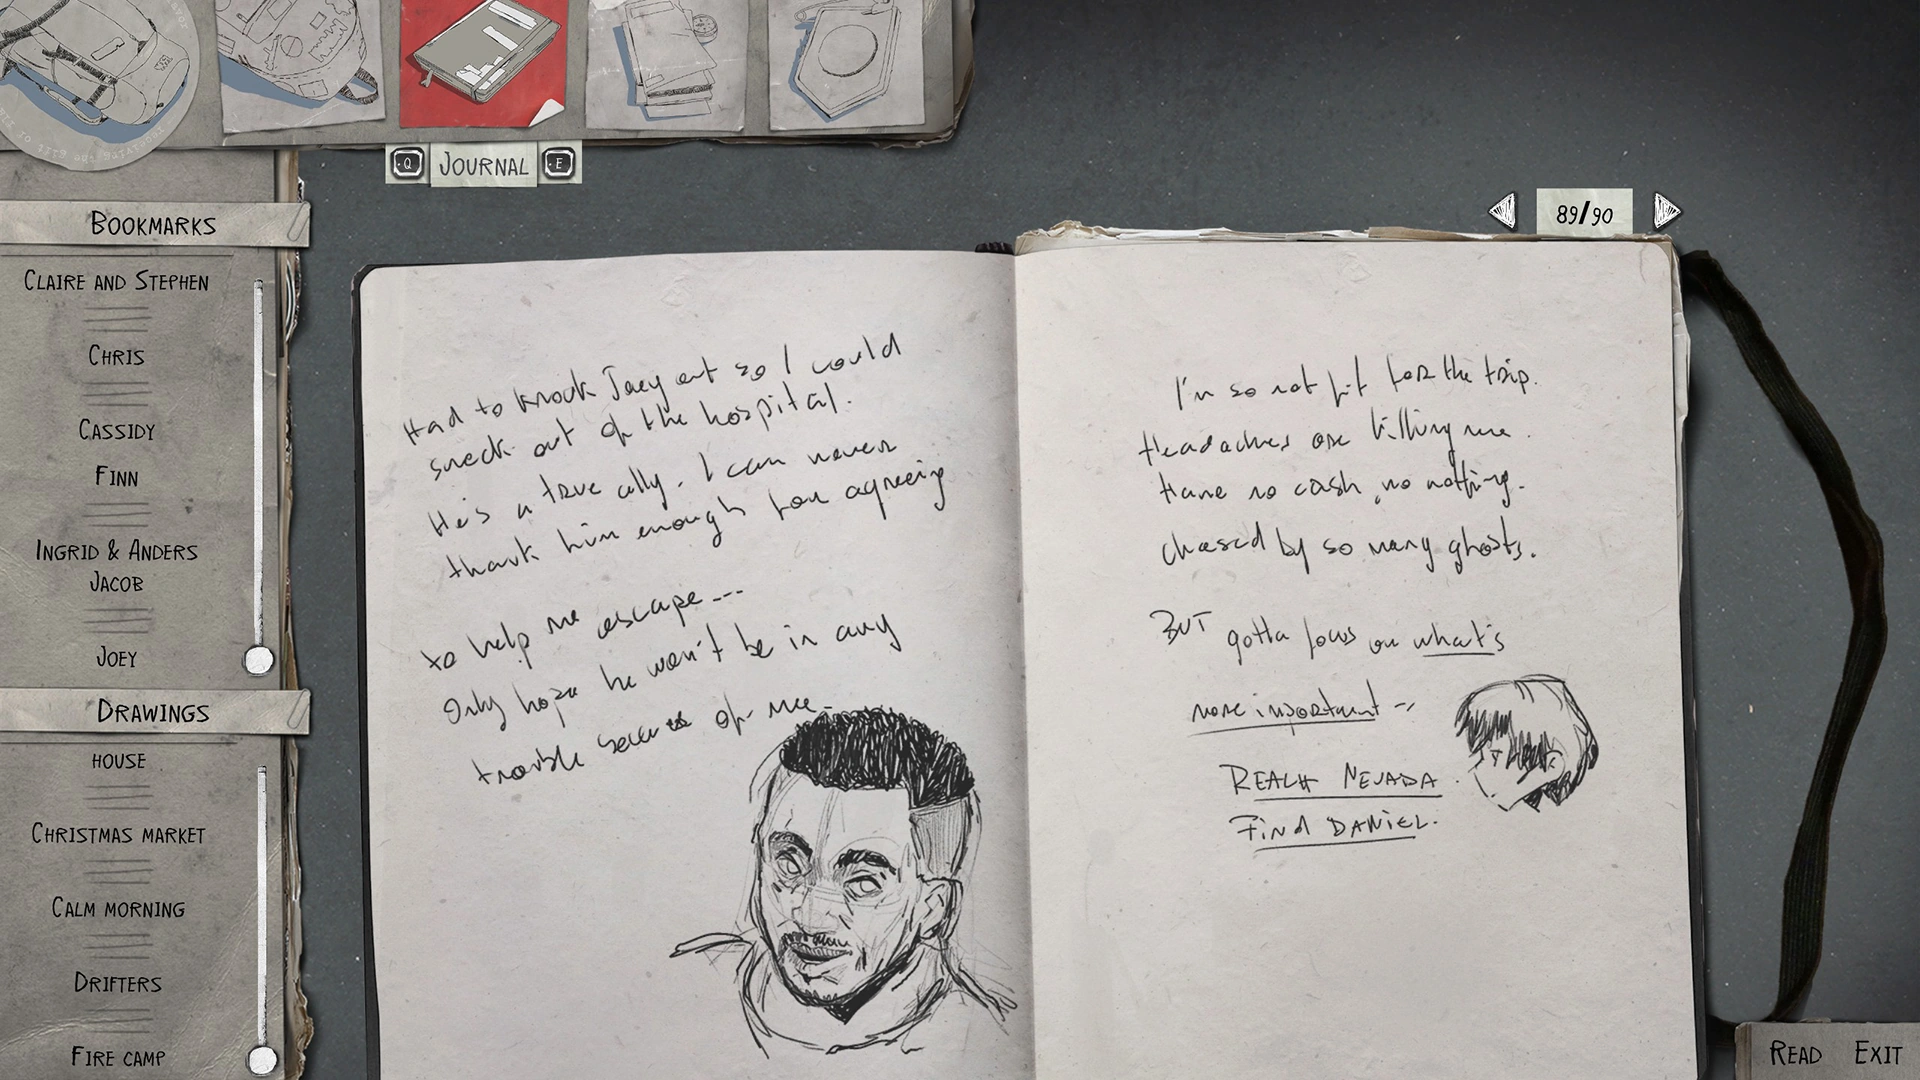 Q JOURNAL E
89/90
BOOKMARKS
CLAIRE AND STEPHEN
CHRIS
CASSIDY
FINN
INGRID & ANDERS
JACOB
JOEY
DRAWINGS
HOUSE
CHRISTMAS MARKET
CALM MORNING
DRIFTERS
FIRE CAMP
Had to knock Joey out so I could
sneak out of the hospital.
He's a true ally. I can never
thank him enough for agreeing
to help me escape---
Only hope he won't be in any
trouble because of me.
I'm so not fit for the trip.
Headaches are killing me.
Have no cash, no nothing.
chased by so many ghosts.
BUT gotta focus on what's
more important --
REACH NEVADA.
Find DANIEL.
READ EXIT